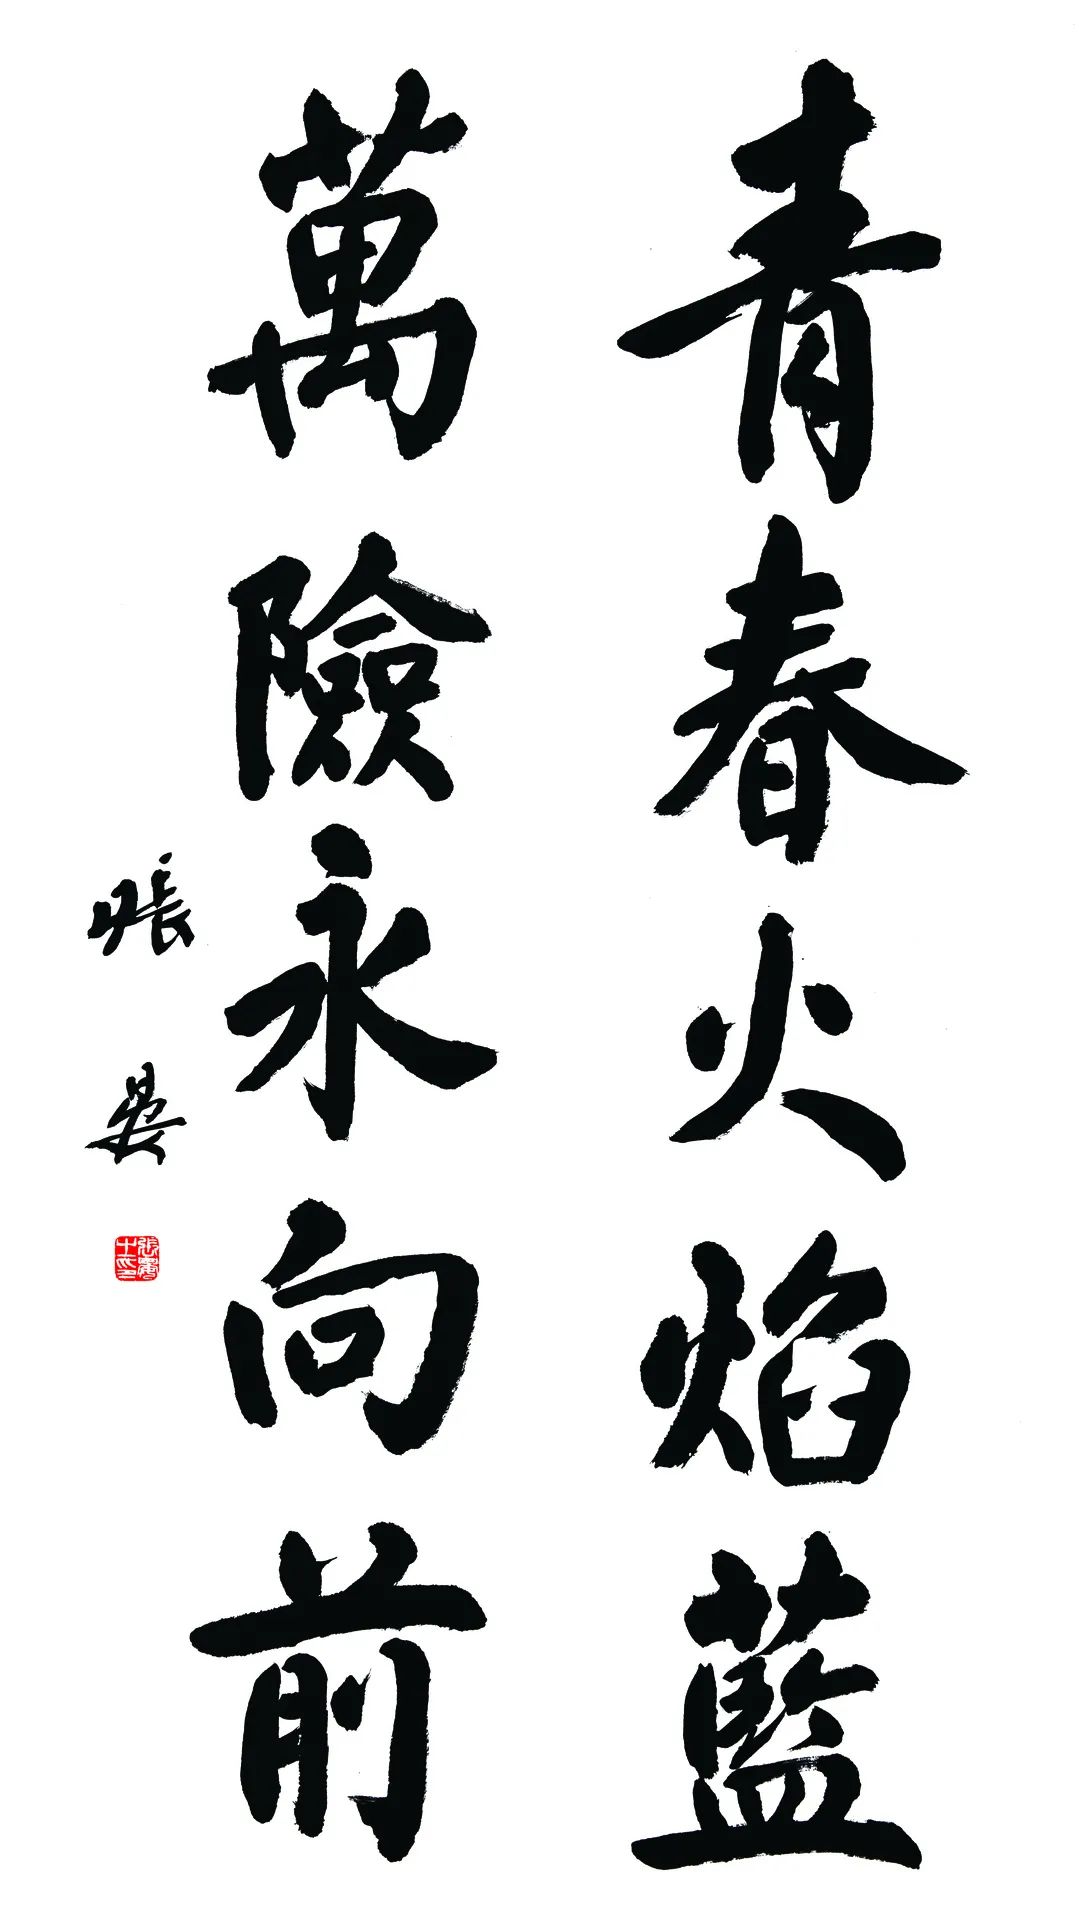 青春火焰藍
萬險永向前